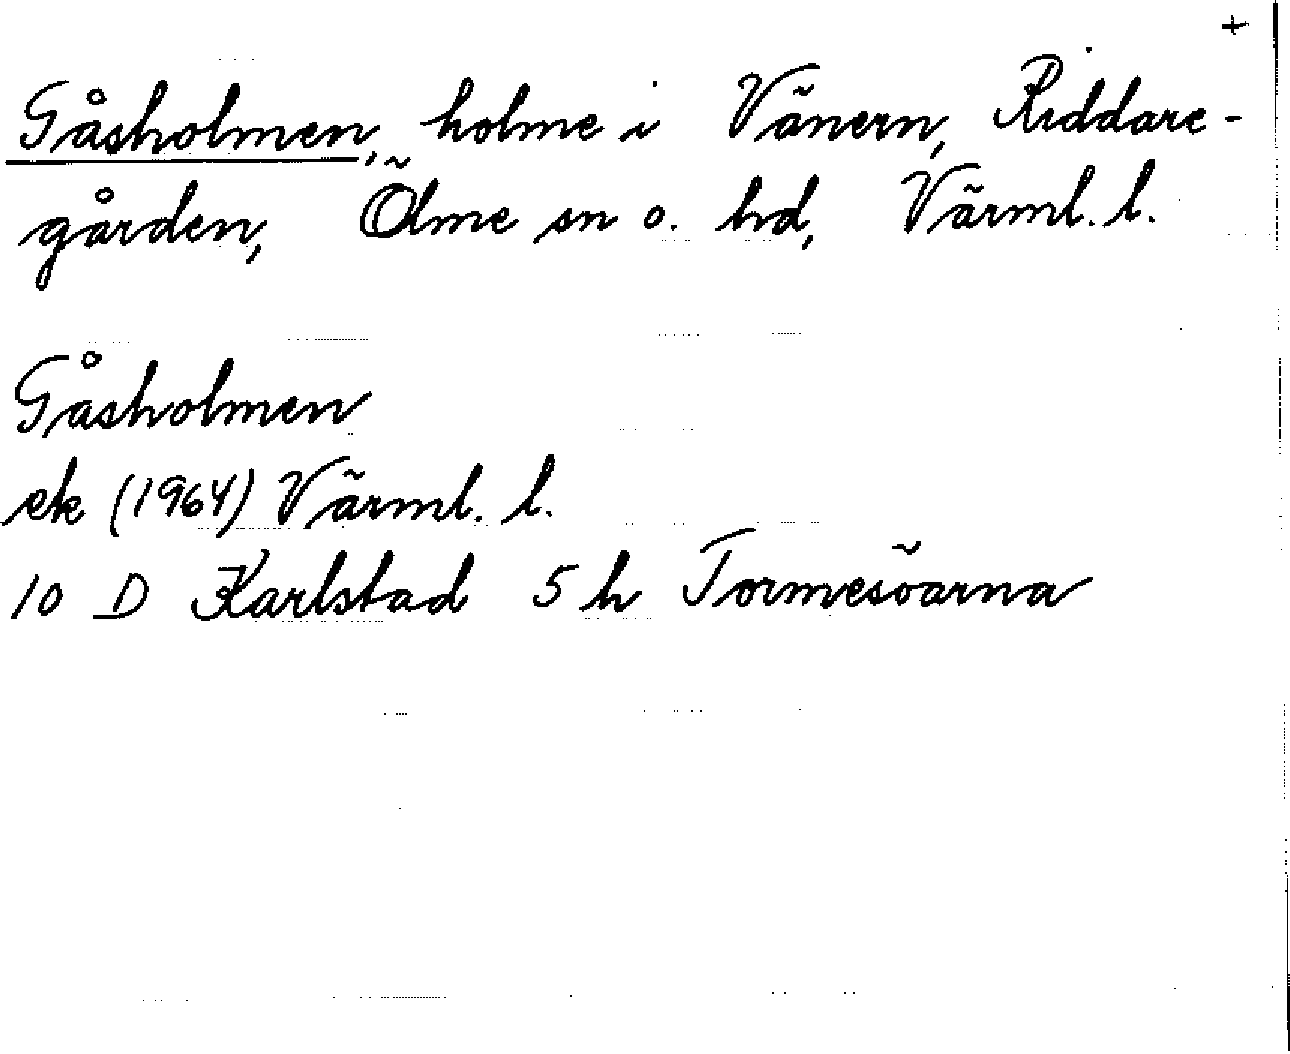 +
Gåsholmen, holme i Vänern, Riddare-
gården, Ölme sn o. hd, Värml. l.
Gåsholmen
ek (1964) Värml. l.
10 D Karlstad 5 h Tormesöarna